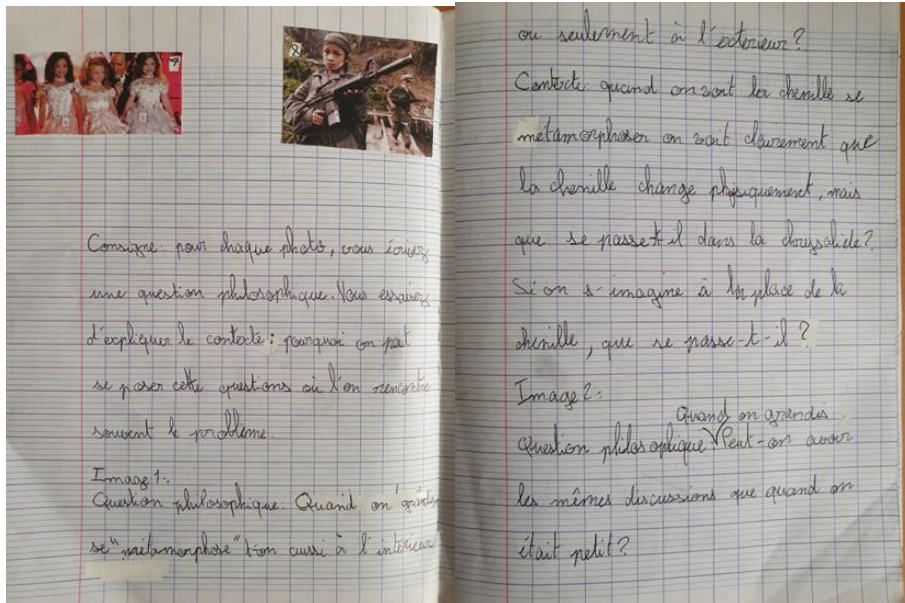 Consigne: pour chaque photo, vous écrivez
une question philosophique. Vous essairez
d'expliquer le contexte: pourquoi on peut
se poser cette questions où l'on rencontre
souvent le problème.
Image 1:
Question philosophique: Quand on grandis
se "métamorphose" t-on aussi à l'intérieur
ou seulement à l'exterieur?
Contexte: quand on voit la chenille se
métamorphoser on voit clairement que
la chenille change physiquement, mais
que se passe t il dans la chrysalide?
Si on s'imagine à la place de la
chenille, que se passe-t-il?
Image 2:
Quand on grandis
Question philosophique: Peut-on avoir
les mêmes discussions que quand on
était petit?